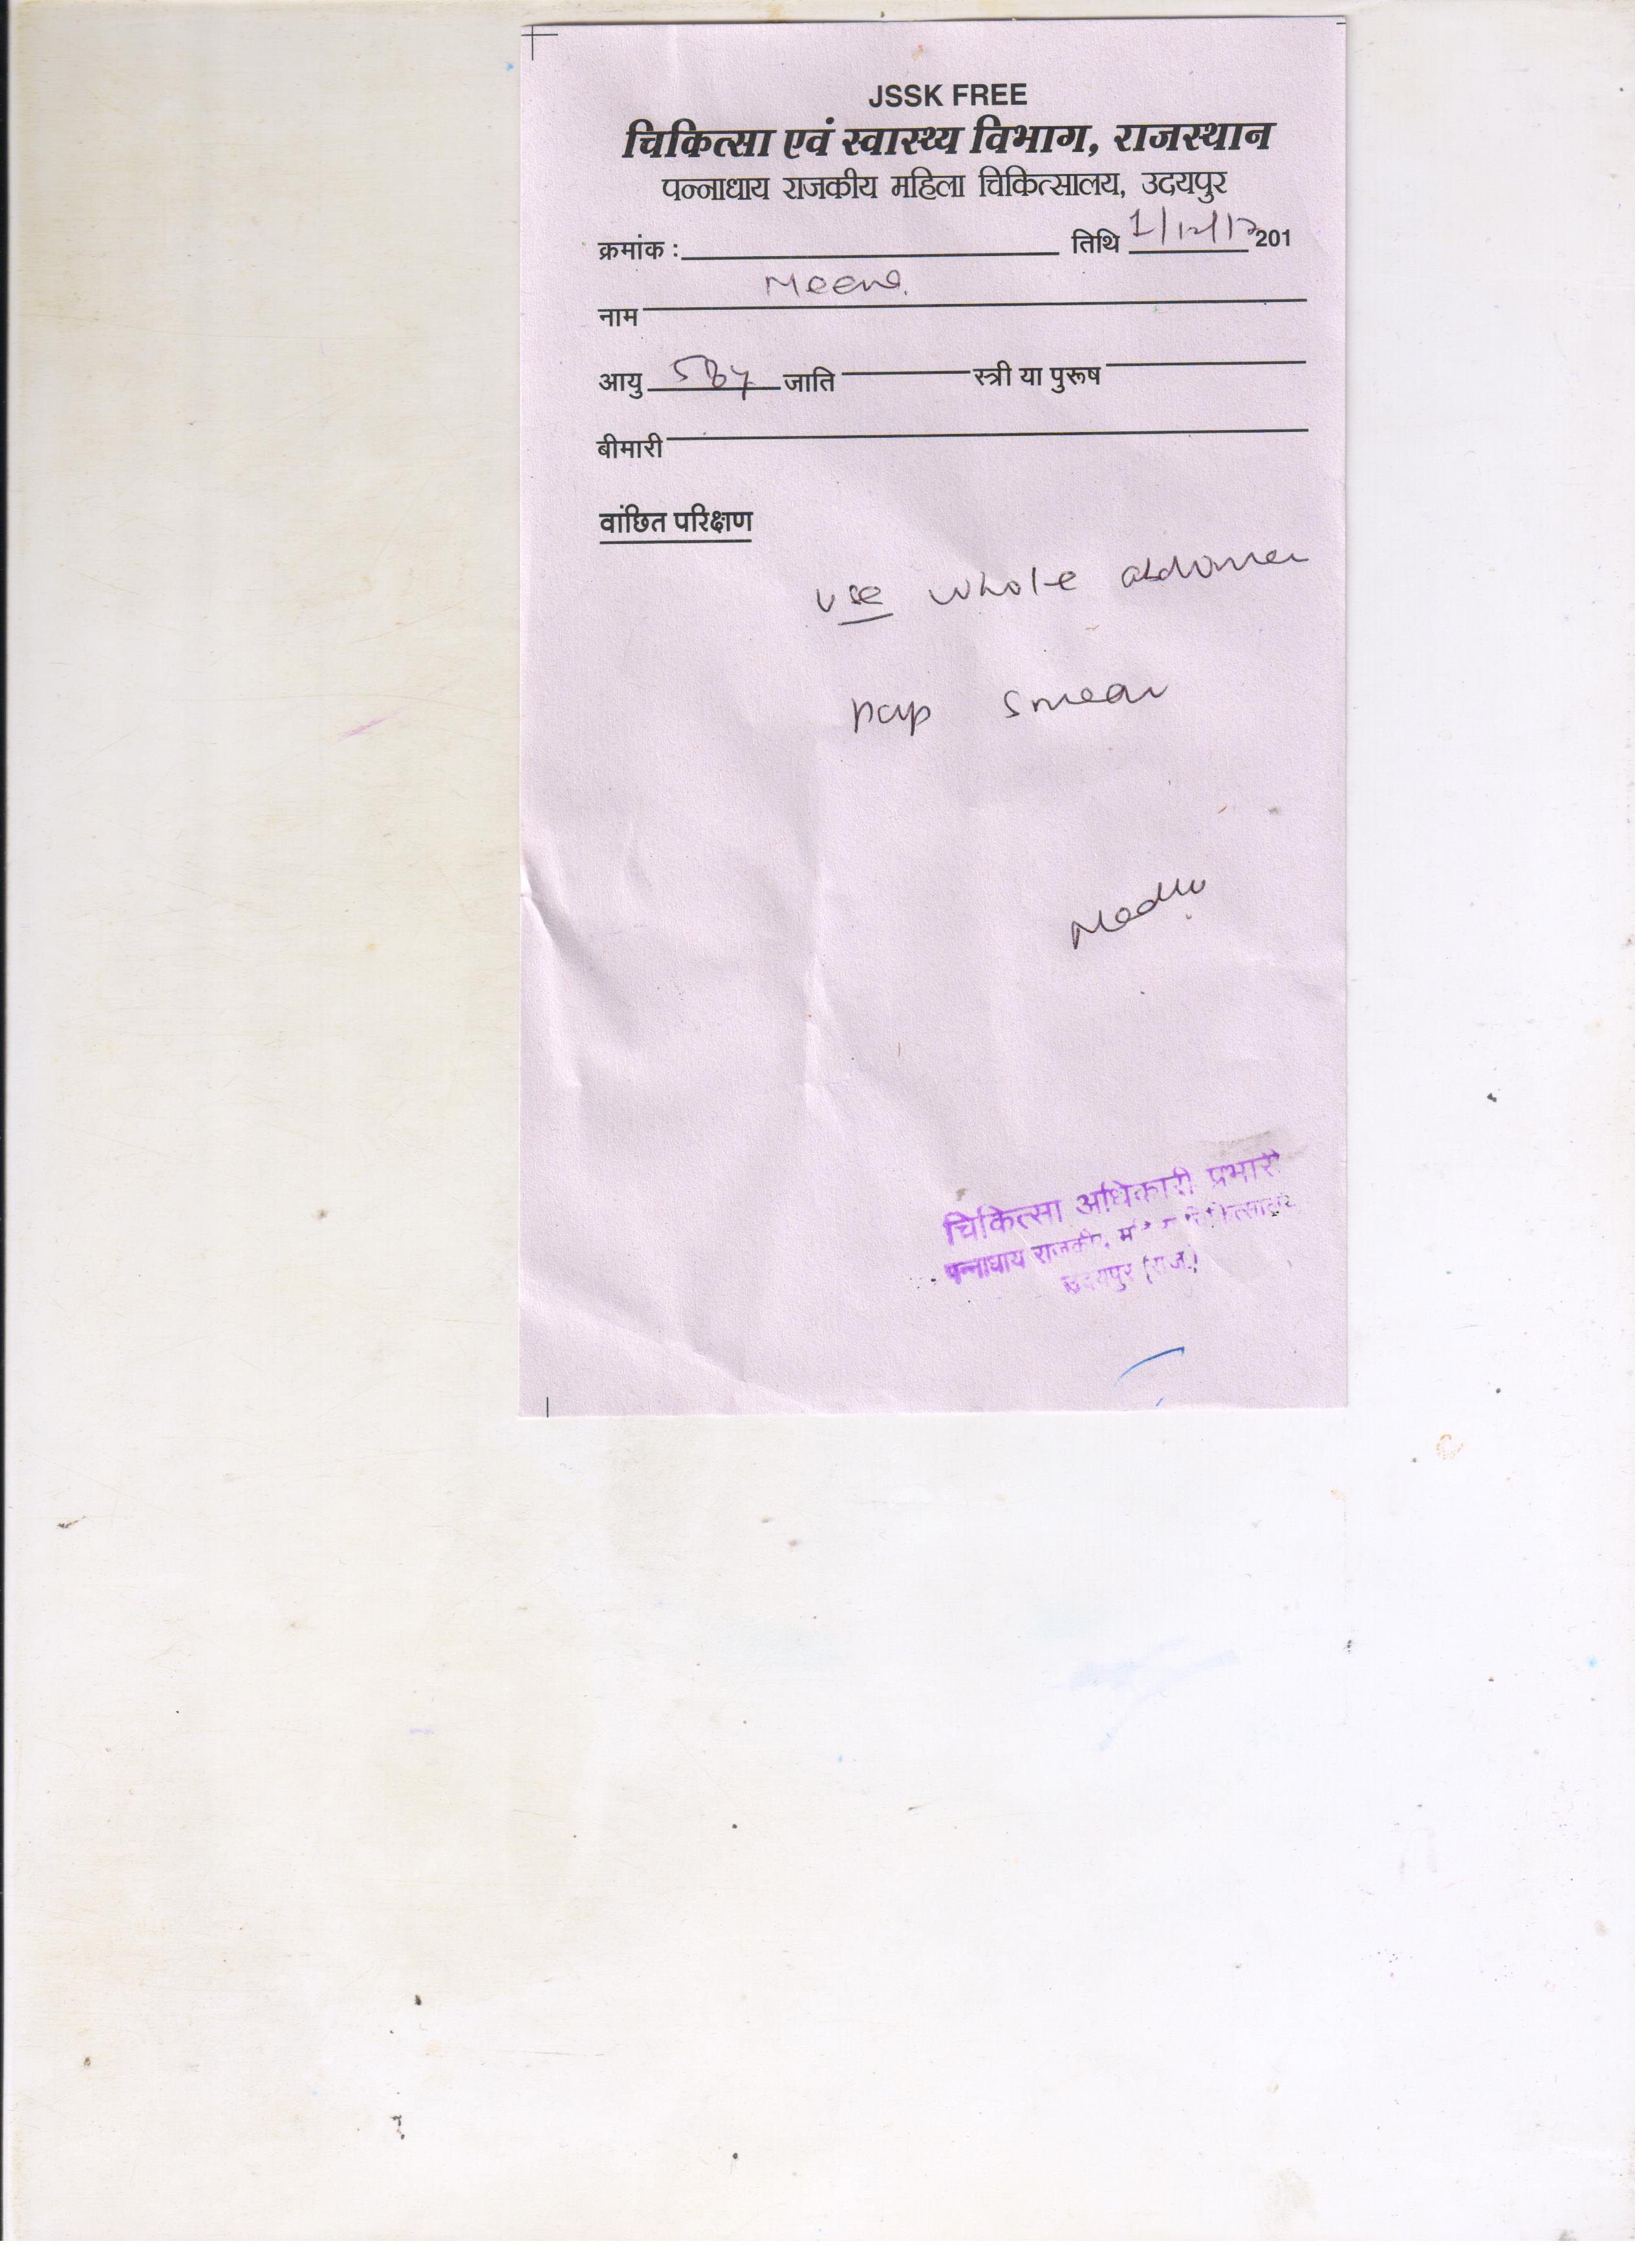 JSSK FREE
चिकित्सा एवं स्वास्थ्य विभाग, राजस्थान
पन्नाधाय राजकीय महिला चिकित्सालय, उदयपुर
क्रमांक : तिथि 201
नाम Meena
आयु जाति स्त्री या पुरूष
बीमारी
वांछित परिक्षण
whole abdomen
pap smear
Madhu
चिकित्सा अधिकारी प्रभारी
पन्नाधाय राजकीय चिकित्सालय
उदयपुर (राज.)